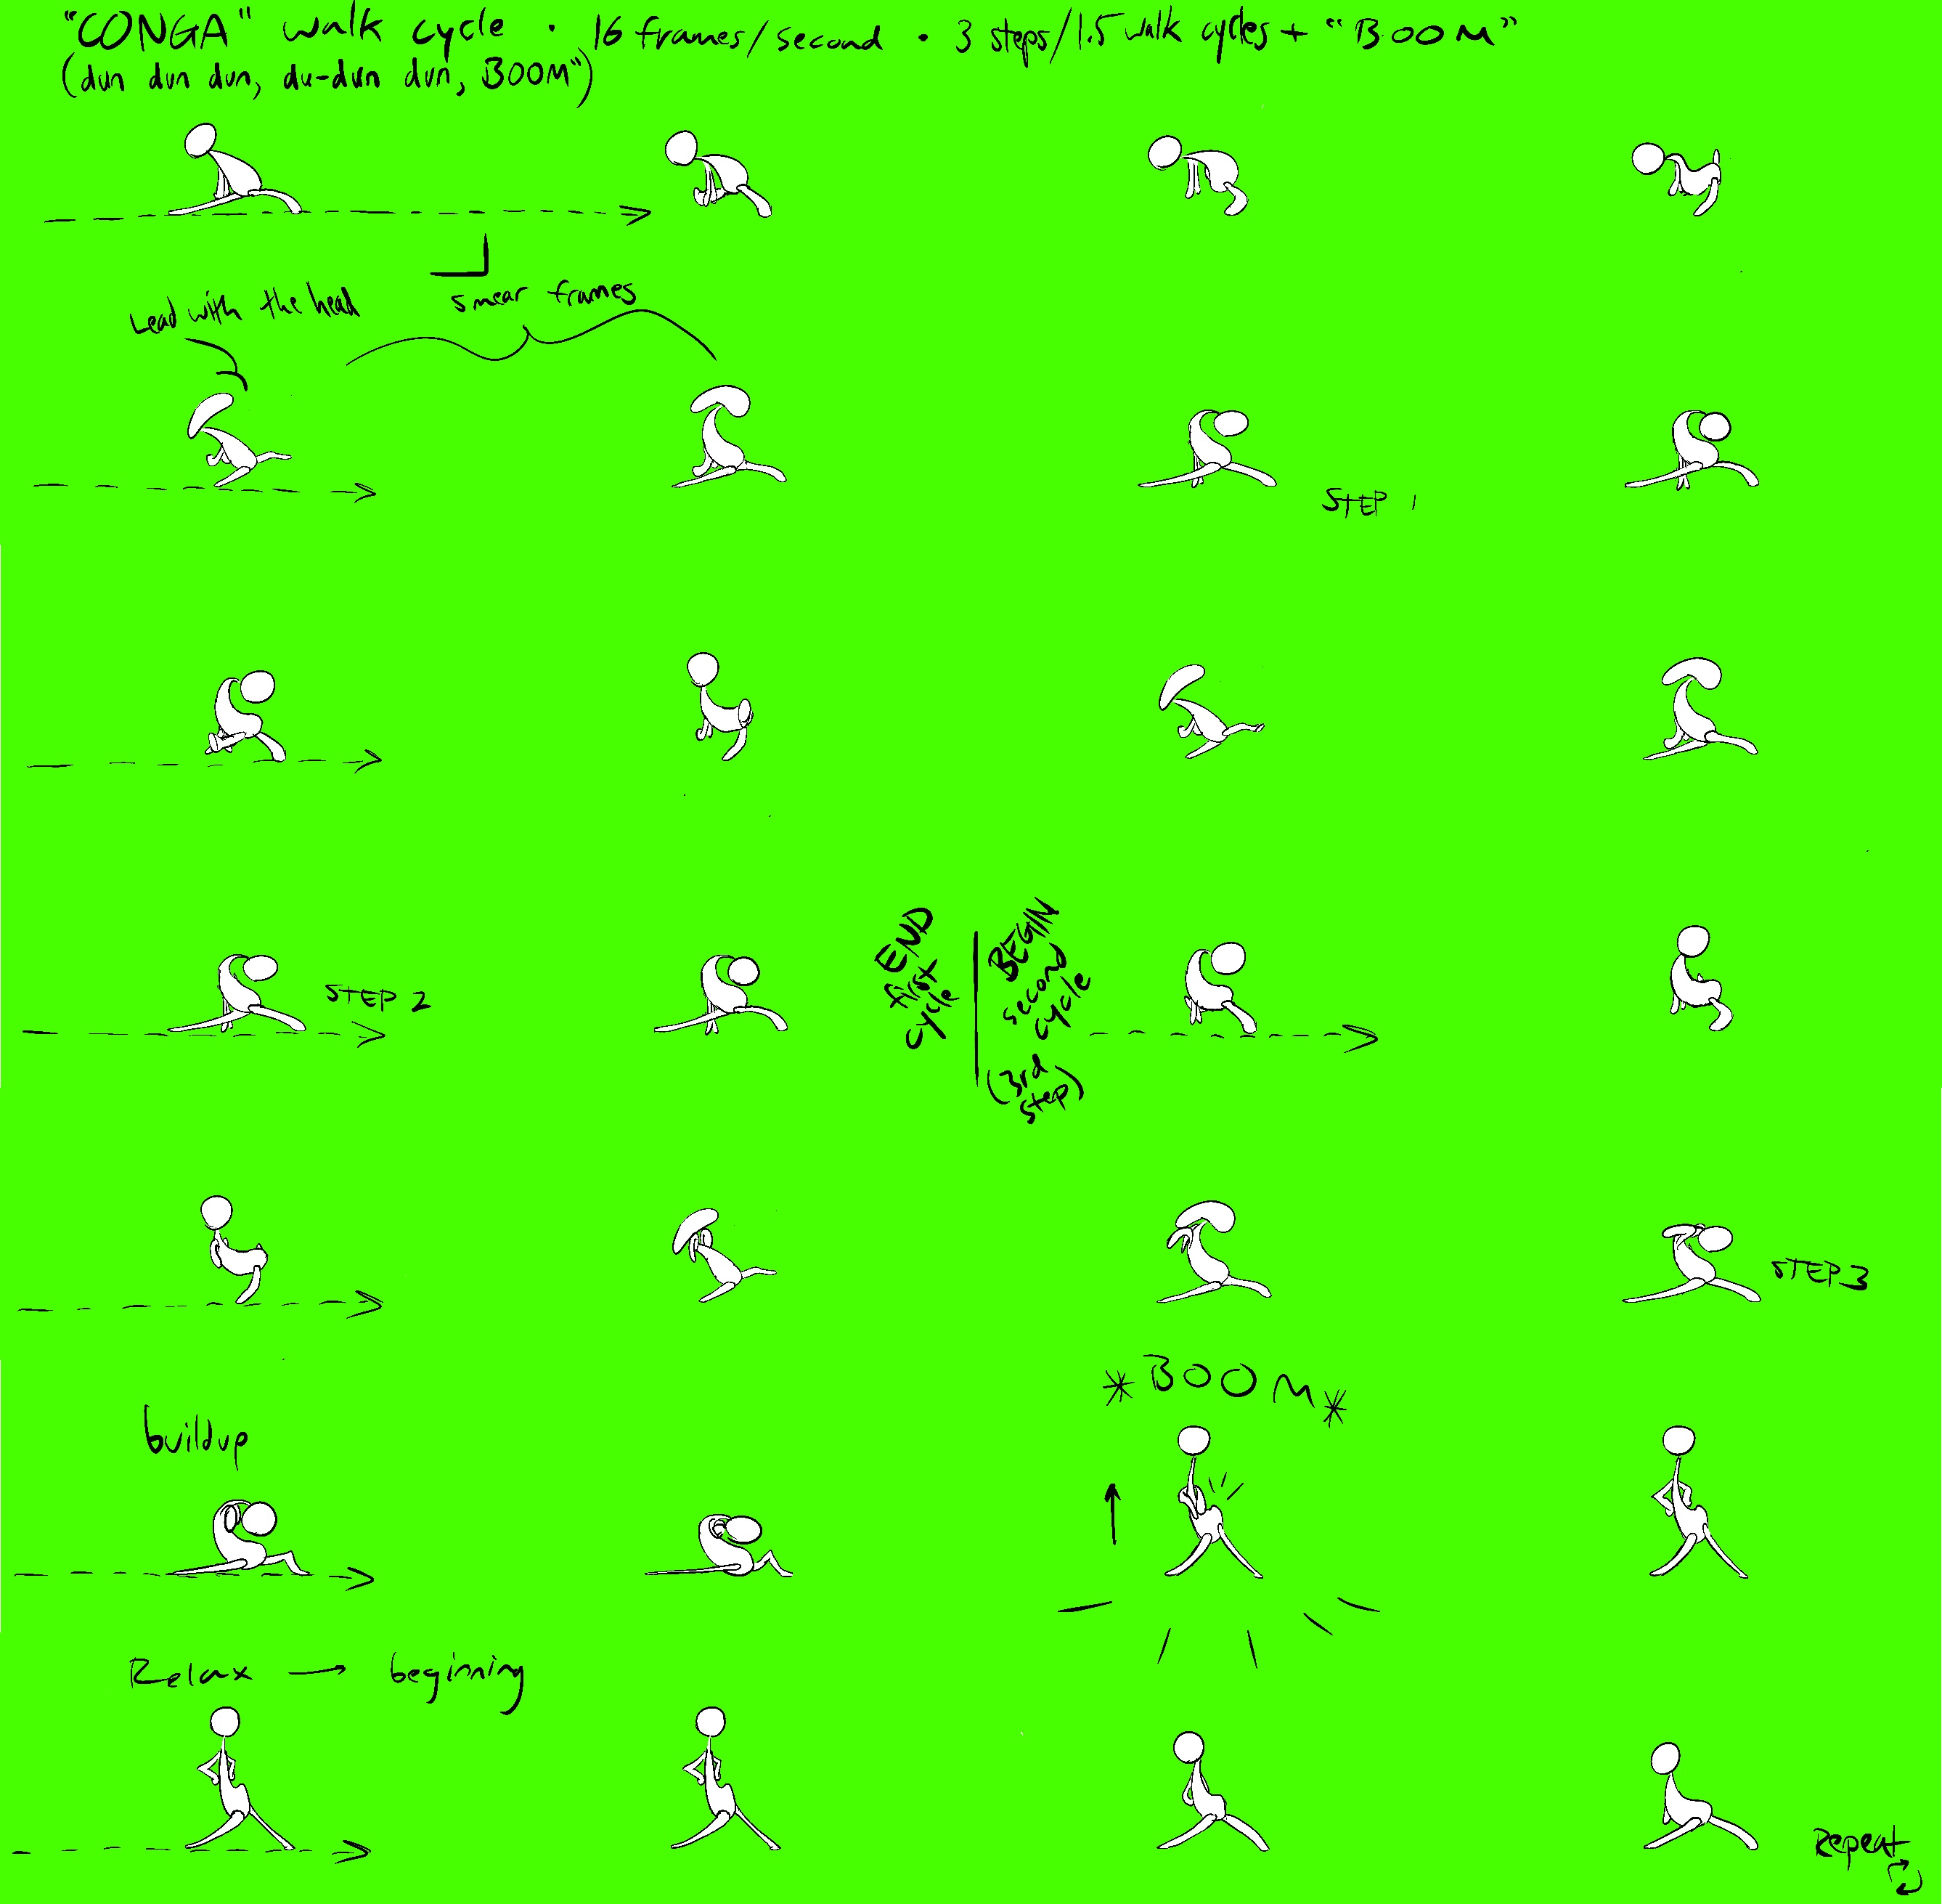 "CONGA" walk cycle · 16 frames/second · 3 steps/1.5 walk cycles + "BOOM"
(dun dun dun, du-dun dun, BOOM")
Lead with the head
smear frames
STEP 1
STEP 2
END
first
cycle
BEGIN
second
cycle
(3rd
step)
STEP 3
buildup
*BOOM*
Relax → beginning
Repeat